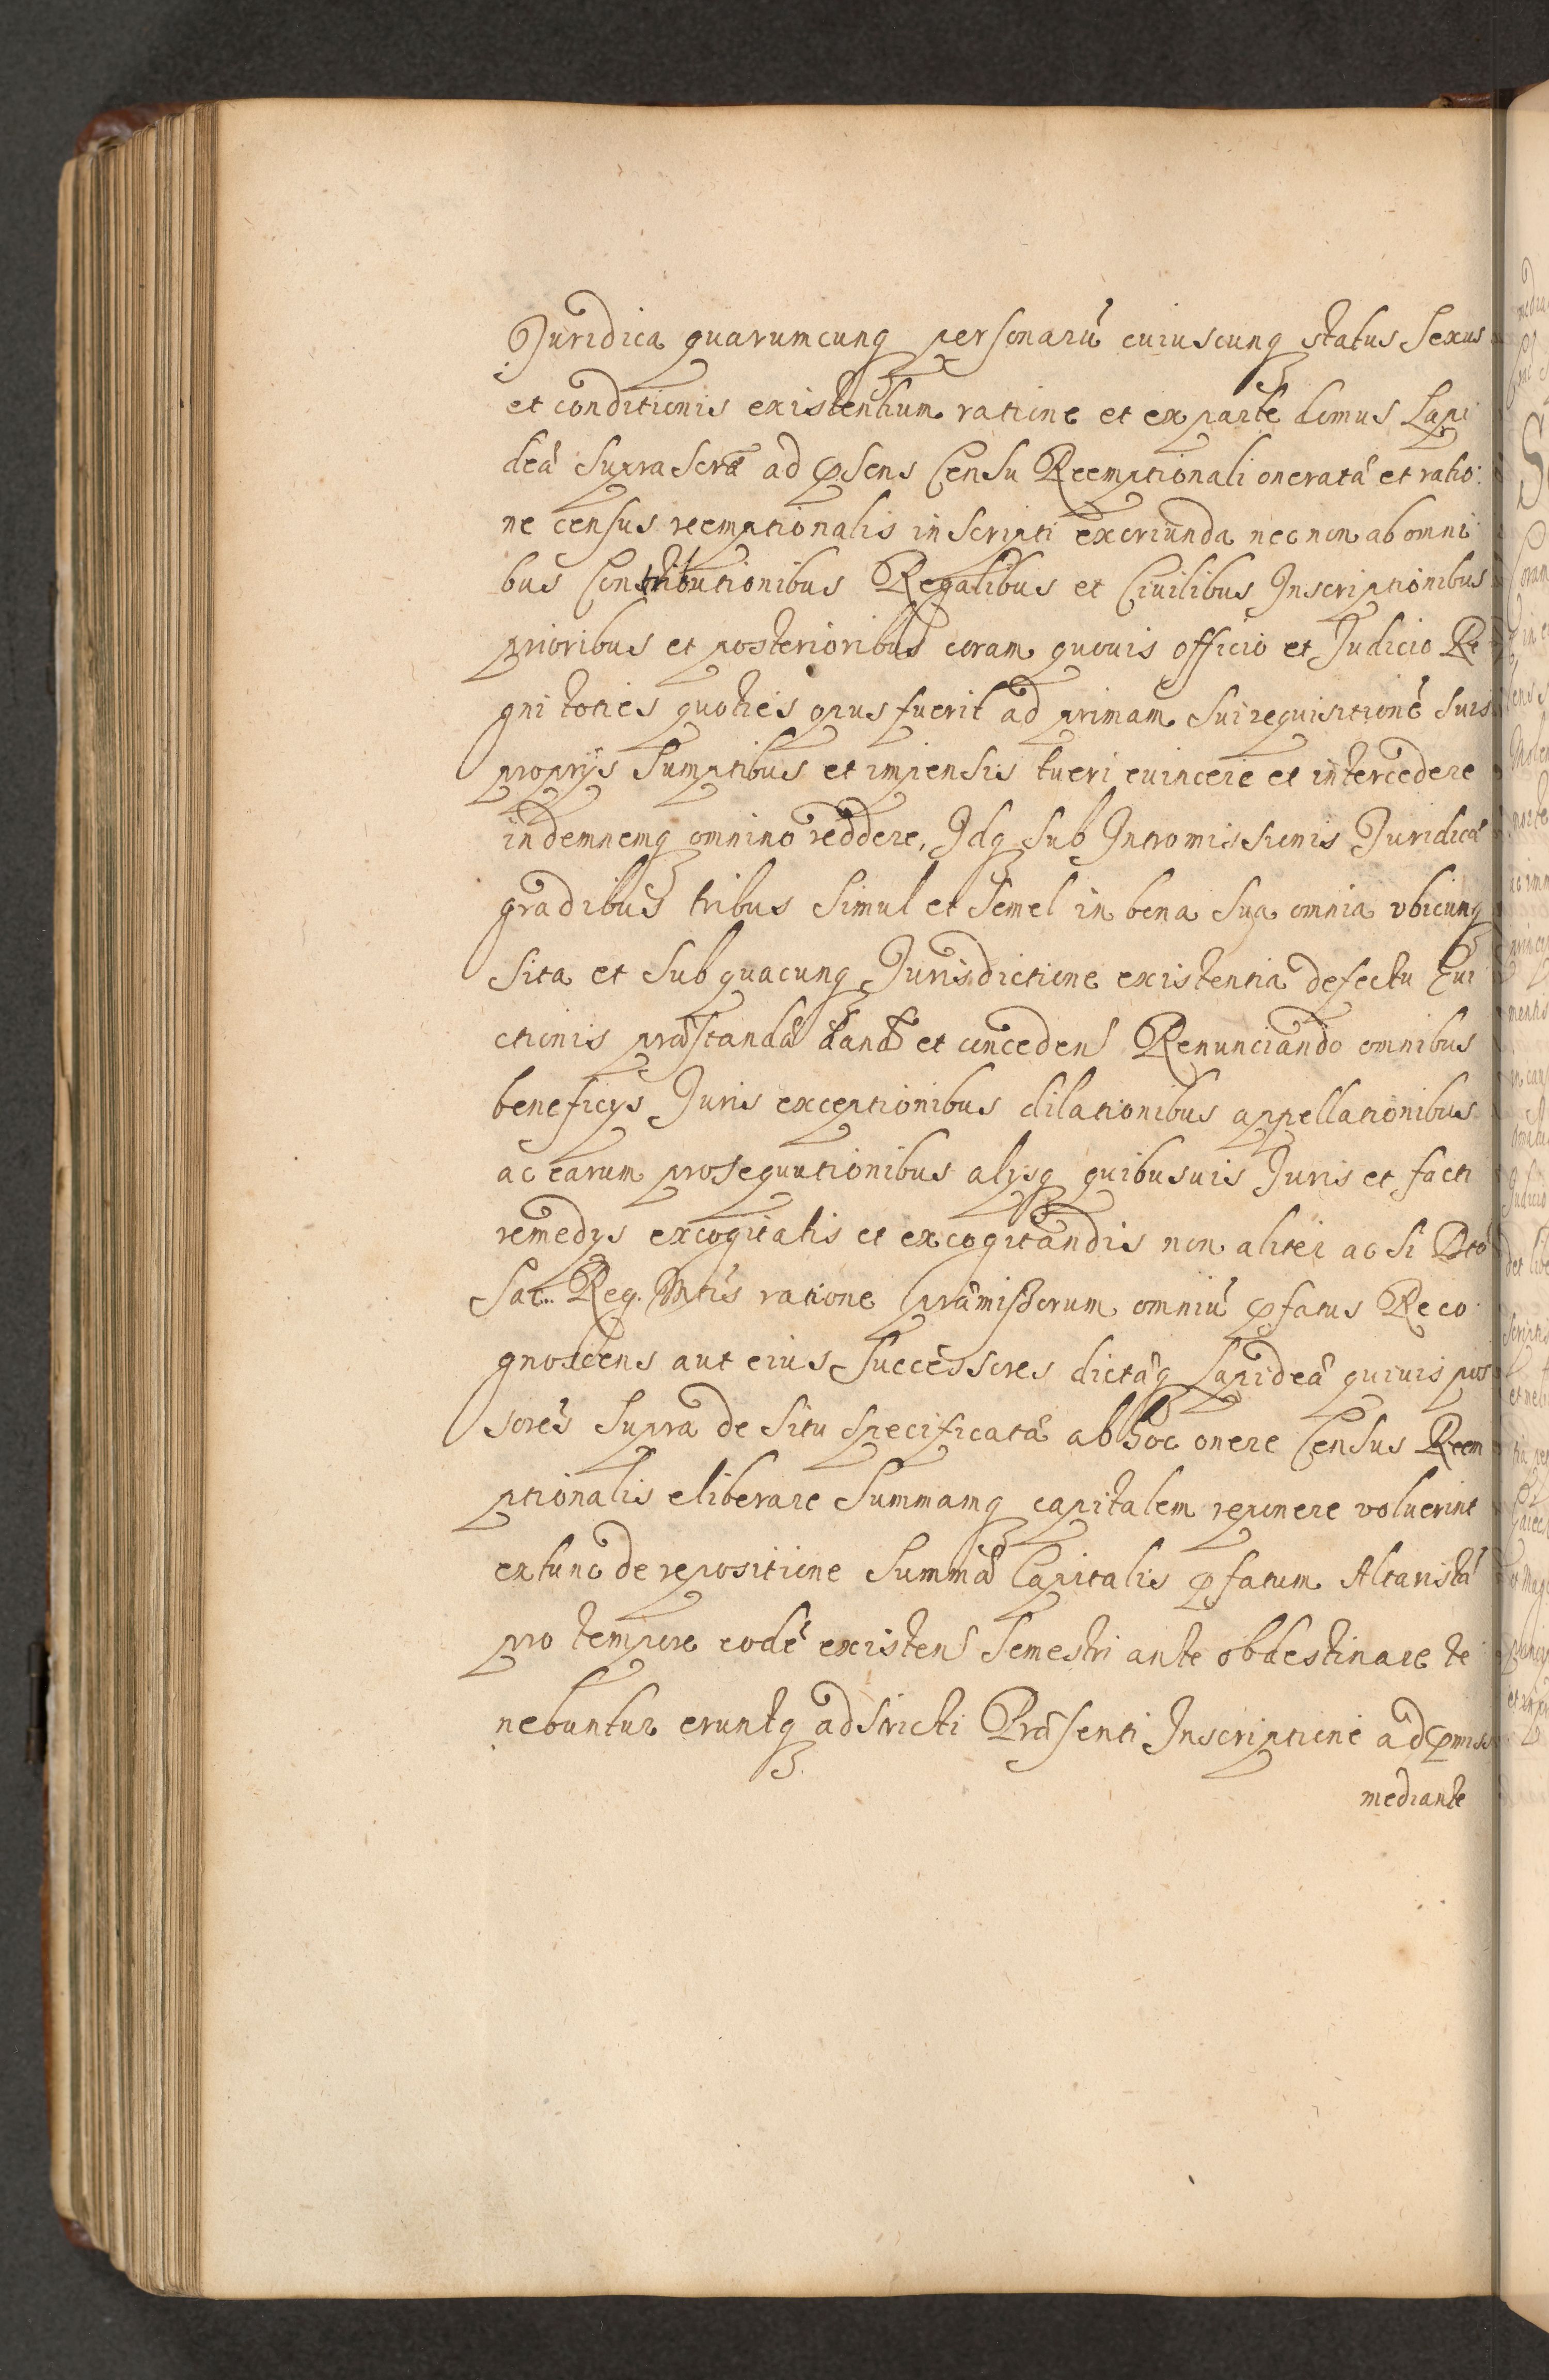 Juridica quarumcunq personarũ cuiuscunq status Sexus
et conditionis existentium ratione et ex parte domus Lapi
deâ supra scrã ad psens Censu Reemptionali oneratâ et ratio:
ne census reemptionalis inscripti exoriunda nec non ab omni
bus Contributionibus Regalibus et Civilibus Inscriptionibus
prioribus et posterioribus coram quouis officio et Judicio Re
gni toties quoties opus fuerit ad primam sui requisitionẽ suis
proprijs sumptibus et impensis tueri euincere et intercedere
indemnemq omnino reddere, Idq sub Intromissionis Juridicâ
gradibus tribus simul et semel in bona sua omnia vbicunq
sita et sub quacunq Jurisdictione existentia defectu Eui
ctionis præstandâ et conceden Renunciando omnibus
beneficijs Juris exceptionibus dilationibus appellationibus
ac earum prosequutionibus alijsq quibusuis Juris et facti
remedijs excogitatis et excogitandis non aliter ac si
Sac. Reg. Mtis ratione præmissorum omniũ pfatus Reco
gnoscens aut eius Successores dictâq Lapideâ quiuis pos
sores supra de situ specificatâ ab hoc onere Census Reem
ptionalis eliberare Summamq capitalem reponere voluerint
extunc de repositione Summæ Capitalis pfatum Altaristã
pro tempore eodẽ existen Semestri ante obdestinare te
nebuntur eruntq adstricti Præsenti Inscriptione ad pmiss
mediante